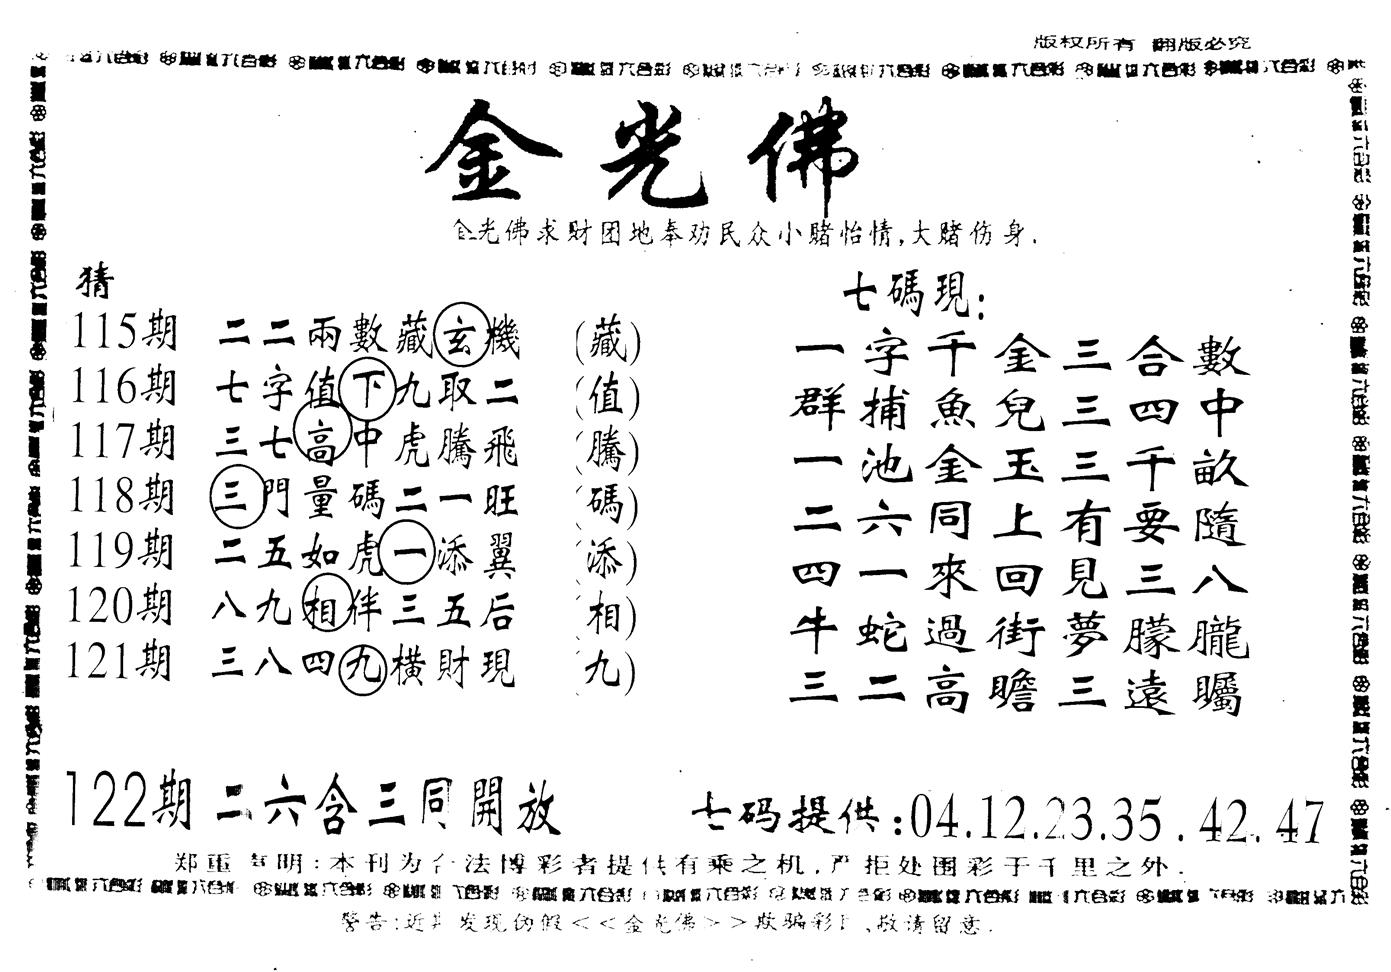 版权所有 翻版必究
金光佛
金光佛求财团地奉劝民众小赌怡情,大赌伤身.
猜
115期 二二兩數藏玄機 (藏)
116期 七字值下九取二 (值)
117期 三七高中虎騰飛 (騰)
118期 三門量碼二一旺 (碼)
119期 二五如虎一添翼 (添)
120期 八九相伴三五后 (相)
121期 三八四九横財現 (九)
七碼現:
一字千金三合數
群捕魚兒三四中
一池金玉三千畝
二六同上有要隨
四一來回見三八
牛蛇過街夢朦朧
三二高瞻三遠矚
122期 二六含三同開放
七码提供:04.12.23.35.42.47
郑重声明:本刊为合法博彩者提供有乘之机,严拒处围彩于千里之外.
警告:近期发现伪假<<金光佛>>欺骗彩民、敬请留意.